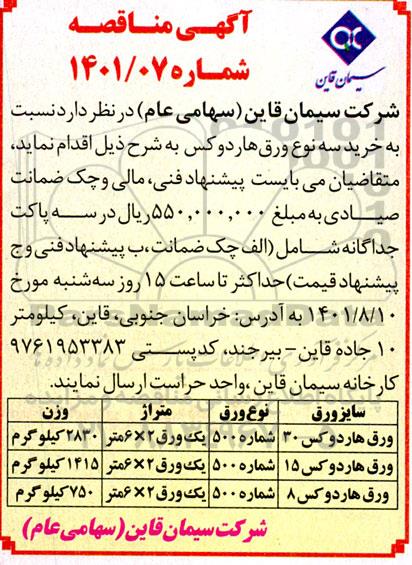 آگهی مناقصه
شماره ۱۴۰۱/۰۷
سیمان قاین
شرکت سیمان قاین (سهامی عام) در نظر دارد نسبت
به خرید سه نوع ورق هاردوکس به شرح ذیل اقدام نماید،
متقاضیان می بایست پیشنهاد فنی، مالی و چک ضمانت
صیادی به مبلغ ۵۵۰,۰۰۰,۰۰۰ ریال در سه پاکت
جداگانه شامل (الف چک ضمانت، ب پیشنهاد فنی و ج
پیشنهاد قیمت) حداکثر تا ساعت ۱۵ روز سه شنبه مورخ
۱۴۰۱/۸/۱۰ به آدرس: خراسان جنوبی، قاین، کیلومتر
۱۰ جاده قاین - بیرجند، کدپستی ۹۷۶۱۹۵۳۳۸۳
کارخانه سیمان قاین ،واحد حراست ارسال نمایند.
سایز ورق نوع ورق متراژ وزن
ورق هاردوکس ۳۰ شماره ۵۰۰ یک ورق ۲×۶ متر ۲۸۳۰ کیلوگرم
ورق هاردوکس ۱۵ شماره ۵۰۰ یک ورق ۲×۶ متر ۱۴۱۵ کیلوگرم
ورق هاردوکس ۸ شماره ۵۰۰ یک ورق ۲×۶ متر ۷۵۰ کیلوگرم
شرکت سیمان قاین (سهامی عام)